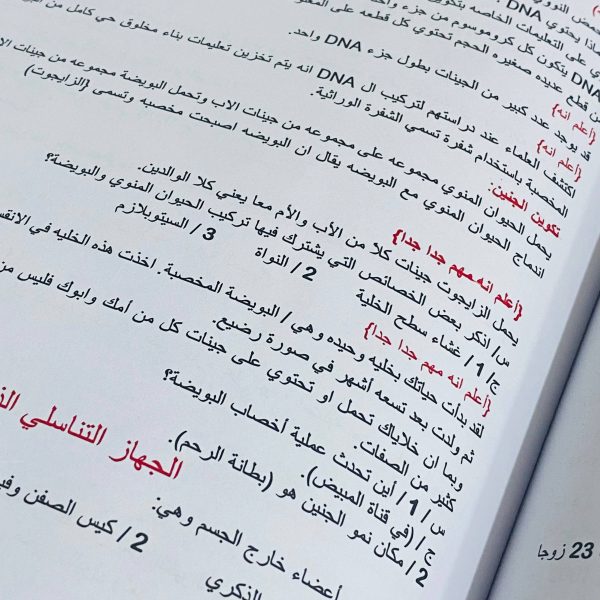 لحمض النووي
ماذا يحتوي DNA
ي على التعليمات الخاصه بتكوين
DNA يتكون كل كروموسوم من جزء واحد
ن قطع عديده صغيره الحجم تحتوي كل قطعه على المعلو
{أعلم انه}
قد يوجد عدد كبير من الجينات بطول جزء DNA واحد.
{أعلم انه}
اكتشف العلماء عند دراستهم لتركيب ال DNA انه يتم تخزين تعليمات بناء مخلوق حي كامل من البي
المخصبة باستخدام شفرة تسمى الشفرة الوراثية.
تكوين الجنين:
يحمل الحيوان المنوي مجموعه على مجموعه من جينات الاب وتحمل البويضة مجموعه من جينات الا
اندماج الحيوان المنوي مع البويضه يقال ان البويضه اصبحت مخصبه وتسمى {الزايجوت}
{أعلم انه مهم جدا جدا}
يحمل الزايجوت جينات كلا من الأب والأم معا يعني كلا الوالدين.
س/ اذكر بعض الخصائص التي يشترك فيها تركيب الحيوان المنوي والبويضة؟
ج/ 1/ غشاء سطح الخلية 2/ النواة 3/ السيتوبلازم
{أعلم انه مهم جدا جدا}
لقد بدأت حياتك بخليه وحيده وهي/ البويضة المخصبة. اخذت هذه الخليه في الانقس
ثم ولدت بعد تسعه أشهر في صورة رضيع.
وبما ان خلاياك تحمل او تحتوي على جينات كل من أمك وابوك فليس من
كثير من الصفات.
س/ 1/ أين تحدث عملية أخصاب البويضة؟
ج/ (في قناة المبيض).
2/ مكان نمو الجنين هو (بطانة الرحم).
الجهاز التناسلي الذ
أعضاء خارج الجسم وهي:
2/ كيس الصفن وفي
الذكري
23 زوجا